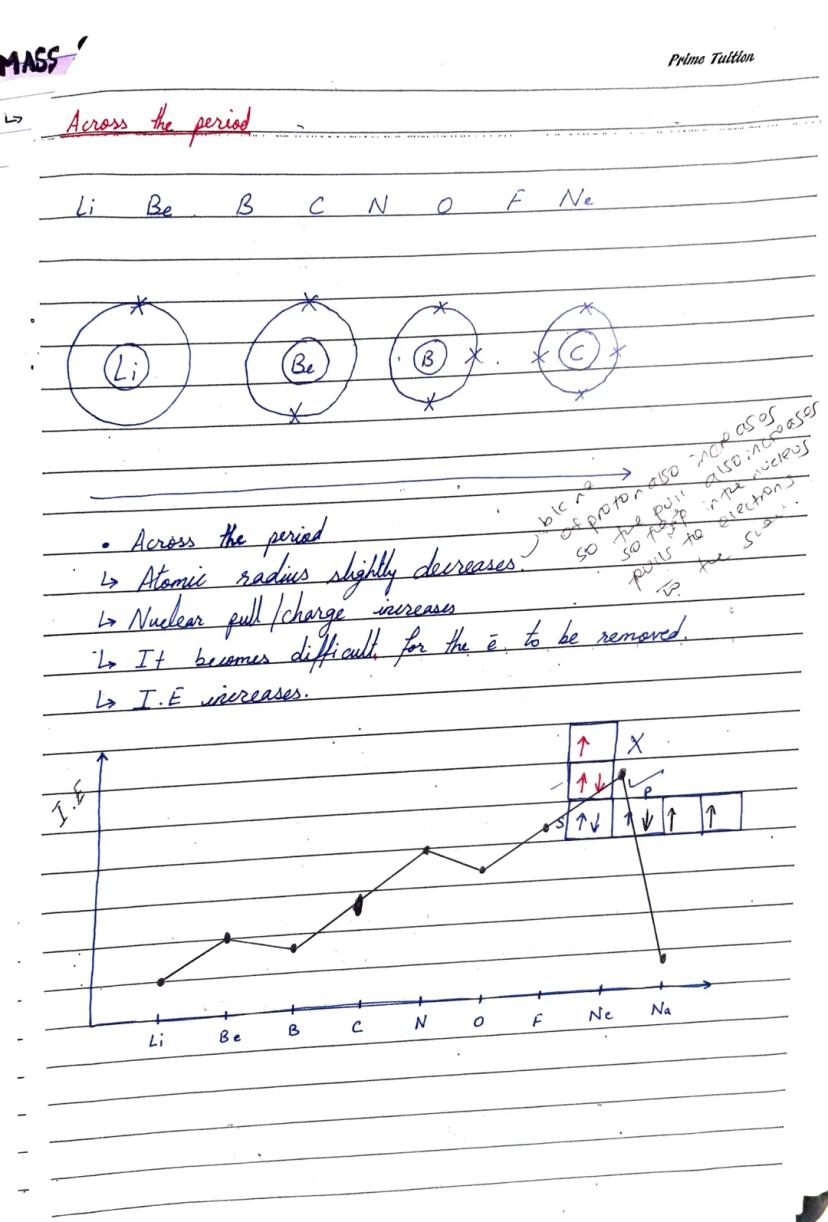 MASS
Prime Tuition
↳ Across the period
Li Be B C N O F Ne
Li Be B C
b/c no
of proton also increases
so the pull also increases
so the in the nucleus
pulls to electrons
to the
• Across the period
↳ Atomic radius slightly decreases.
↳ Nuclear pull/charge increases
↳ It becomes difficult for the ē to be removed.
↳ I.E increases.
I.E
↑ X
↑↓ ✓
P
S ↑↓ ↑↓ ↑ ↑
Li Be B C N O F Ne Na